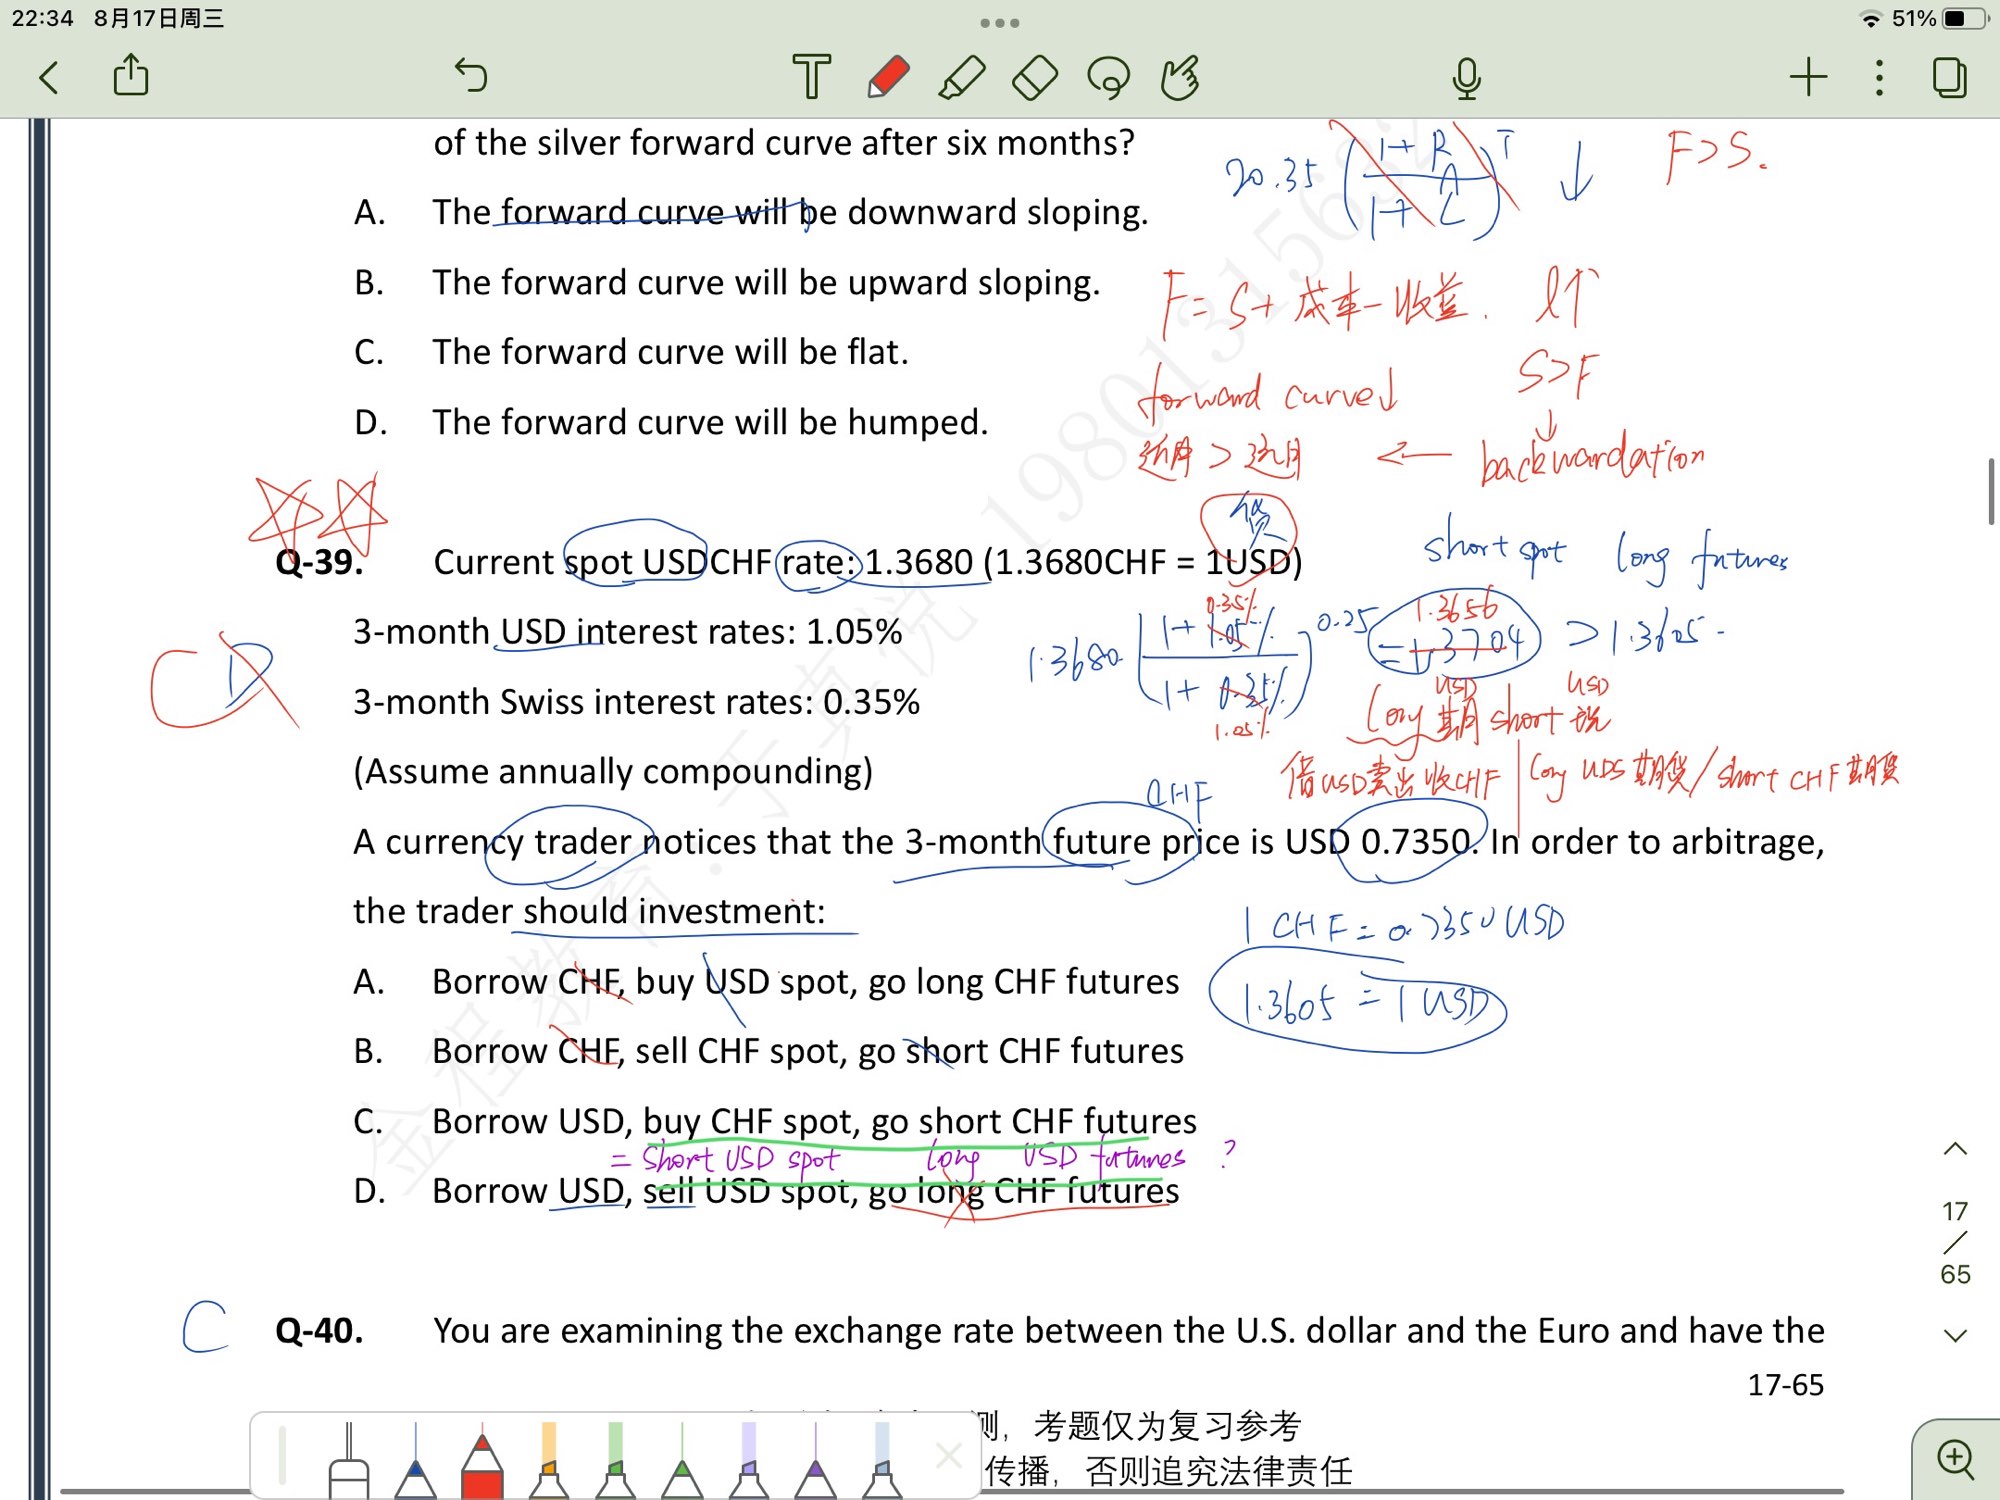 22:34 8月17日周三
51%
of the silver forward curve after six months?
20.35 (1+R / 1+L)^T ↓ F>S.
A. The forward curve will be downward sloping.
B. The forward curve will be upward sloping.
F = S + 成本 - 收益. l↑
C. The forward curve will be flat.
S>F
forward curve↓
D. The forward curve will be humped.
近月 > 远月 ← backwardation
货
Q-39. Current spot USDCHF rate: 1.3680 (1.3680CHF = 1USD)
short spot long futures
3-month USD interest rates: 1.05%
1.3680 [1+ 1.05% 0.35% / 1+ 0.35% 1.05%]^0.25 = 1.3704 1.3656 > 1.3605
CD
3-month Swiss interest rates: 0.35%
USD USD
long 期 short 现
(Assume annually compounding)
借USD卖出收CHF | long UDS 期货/short CHF 期货
CHF
A currency trader notices that the 3-month future price is USD 0.7350. In order to arbitrage,
the trader should investment:
1 CHF = 0.7350 USD
A. Borrow CHF, buy USD spot, go long CHF futures
1.3605 = 1 USD
B. Borrow CHF, sell CHF spot, go short CHF futures
C. Borrow USD, buy CHF spot, go short CHF futures
= Short USD spot long USD futures ?
D. Borrow USD, sell USD spot, go long CHF futures
17
/
65
C
Q-40. You are examining the exchange rate between the U.S. dollar and the Euro and have the
17-65
测，考题仅为复习参考
传播，否则追究法律责任